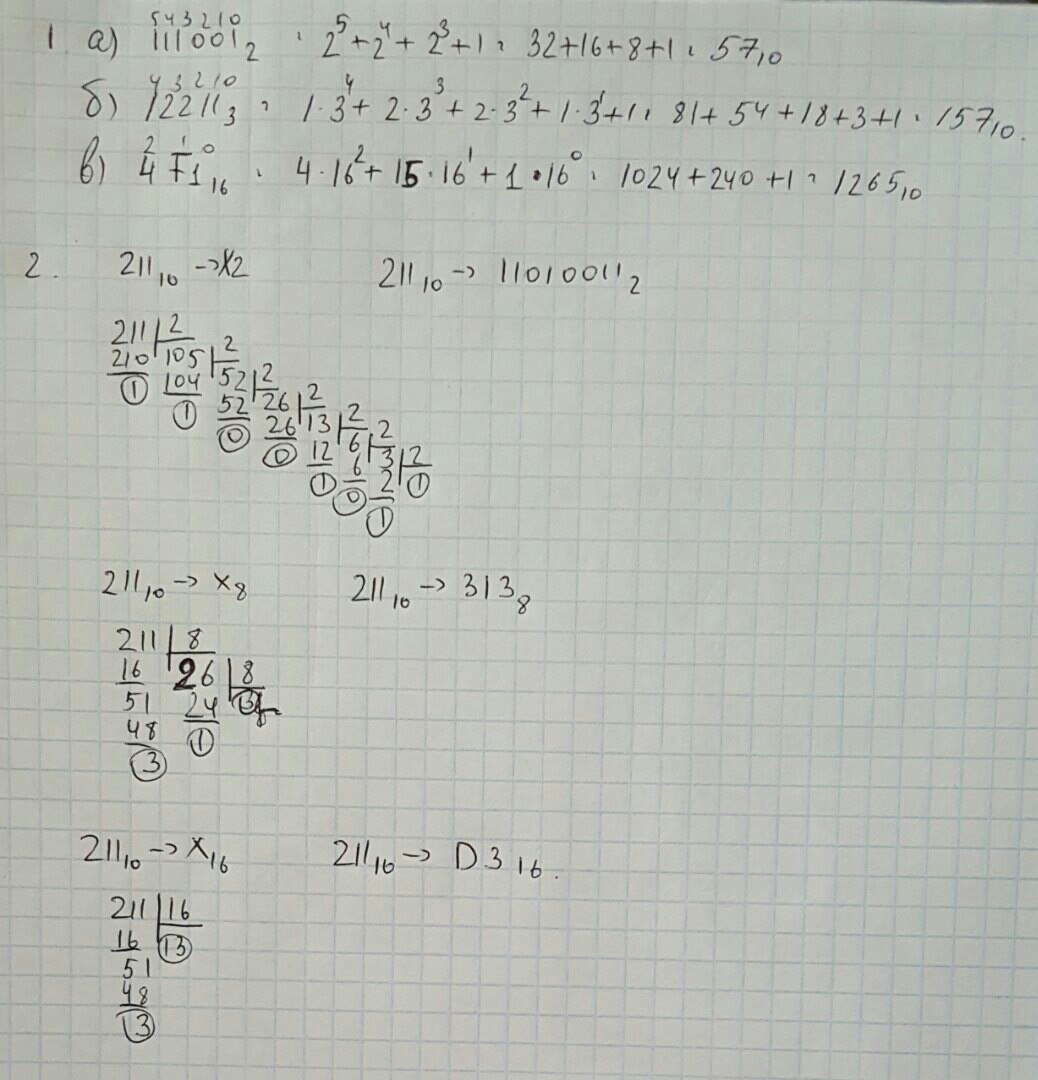 1 а) 111001₂ = 2⁵+2⁴+2³+1 = 32+16+8+1 = 57₁₀
5 4 3 2 1 0
б) 12211₃ = 1·3⁴+2·3³+2·3²+1·3¹+1 = 81+54+18+3+1 = 157₁₀.
4 3 2 1 0
в) 4F1₁₆ = 4·16²+15·16¹+1·16⁰ = 1024+240+1 = 1265₁₀
2 1 0
2. 211₁₀ -> X2 211₁₀ -> 11010011₂
211 2
210 105 2
1 104 52 2
1 52 26 2
0 26 13 2
0 12 6 2
1 6 3 2
0 2 1
1
211₁₀ -> X₈ 211₁₀ -> 313₈
211 8
16 26 8
51 24
48 1
3
211₁₀ -> X₁₆ 211₁₀ -> D3₁₆.
211 16
16 13
51
48
13